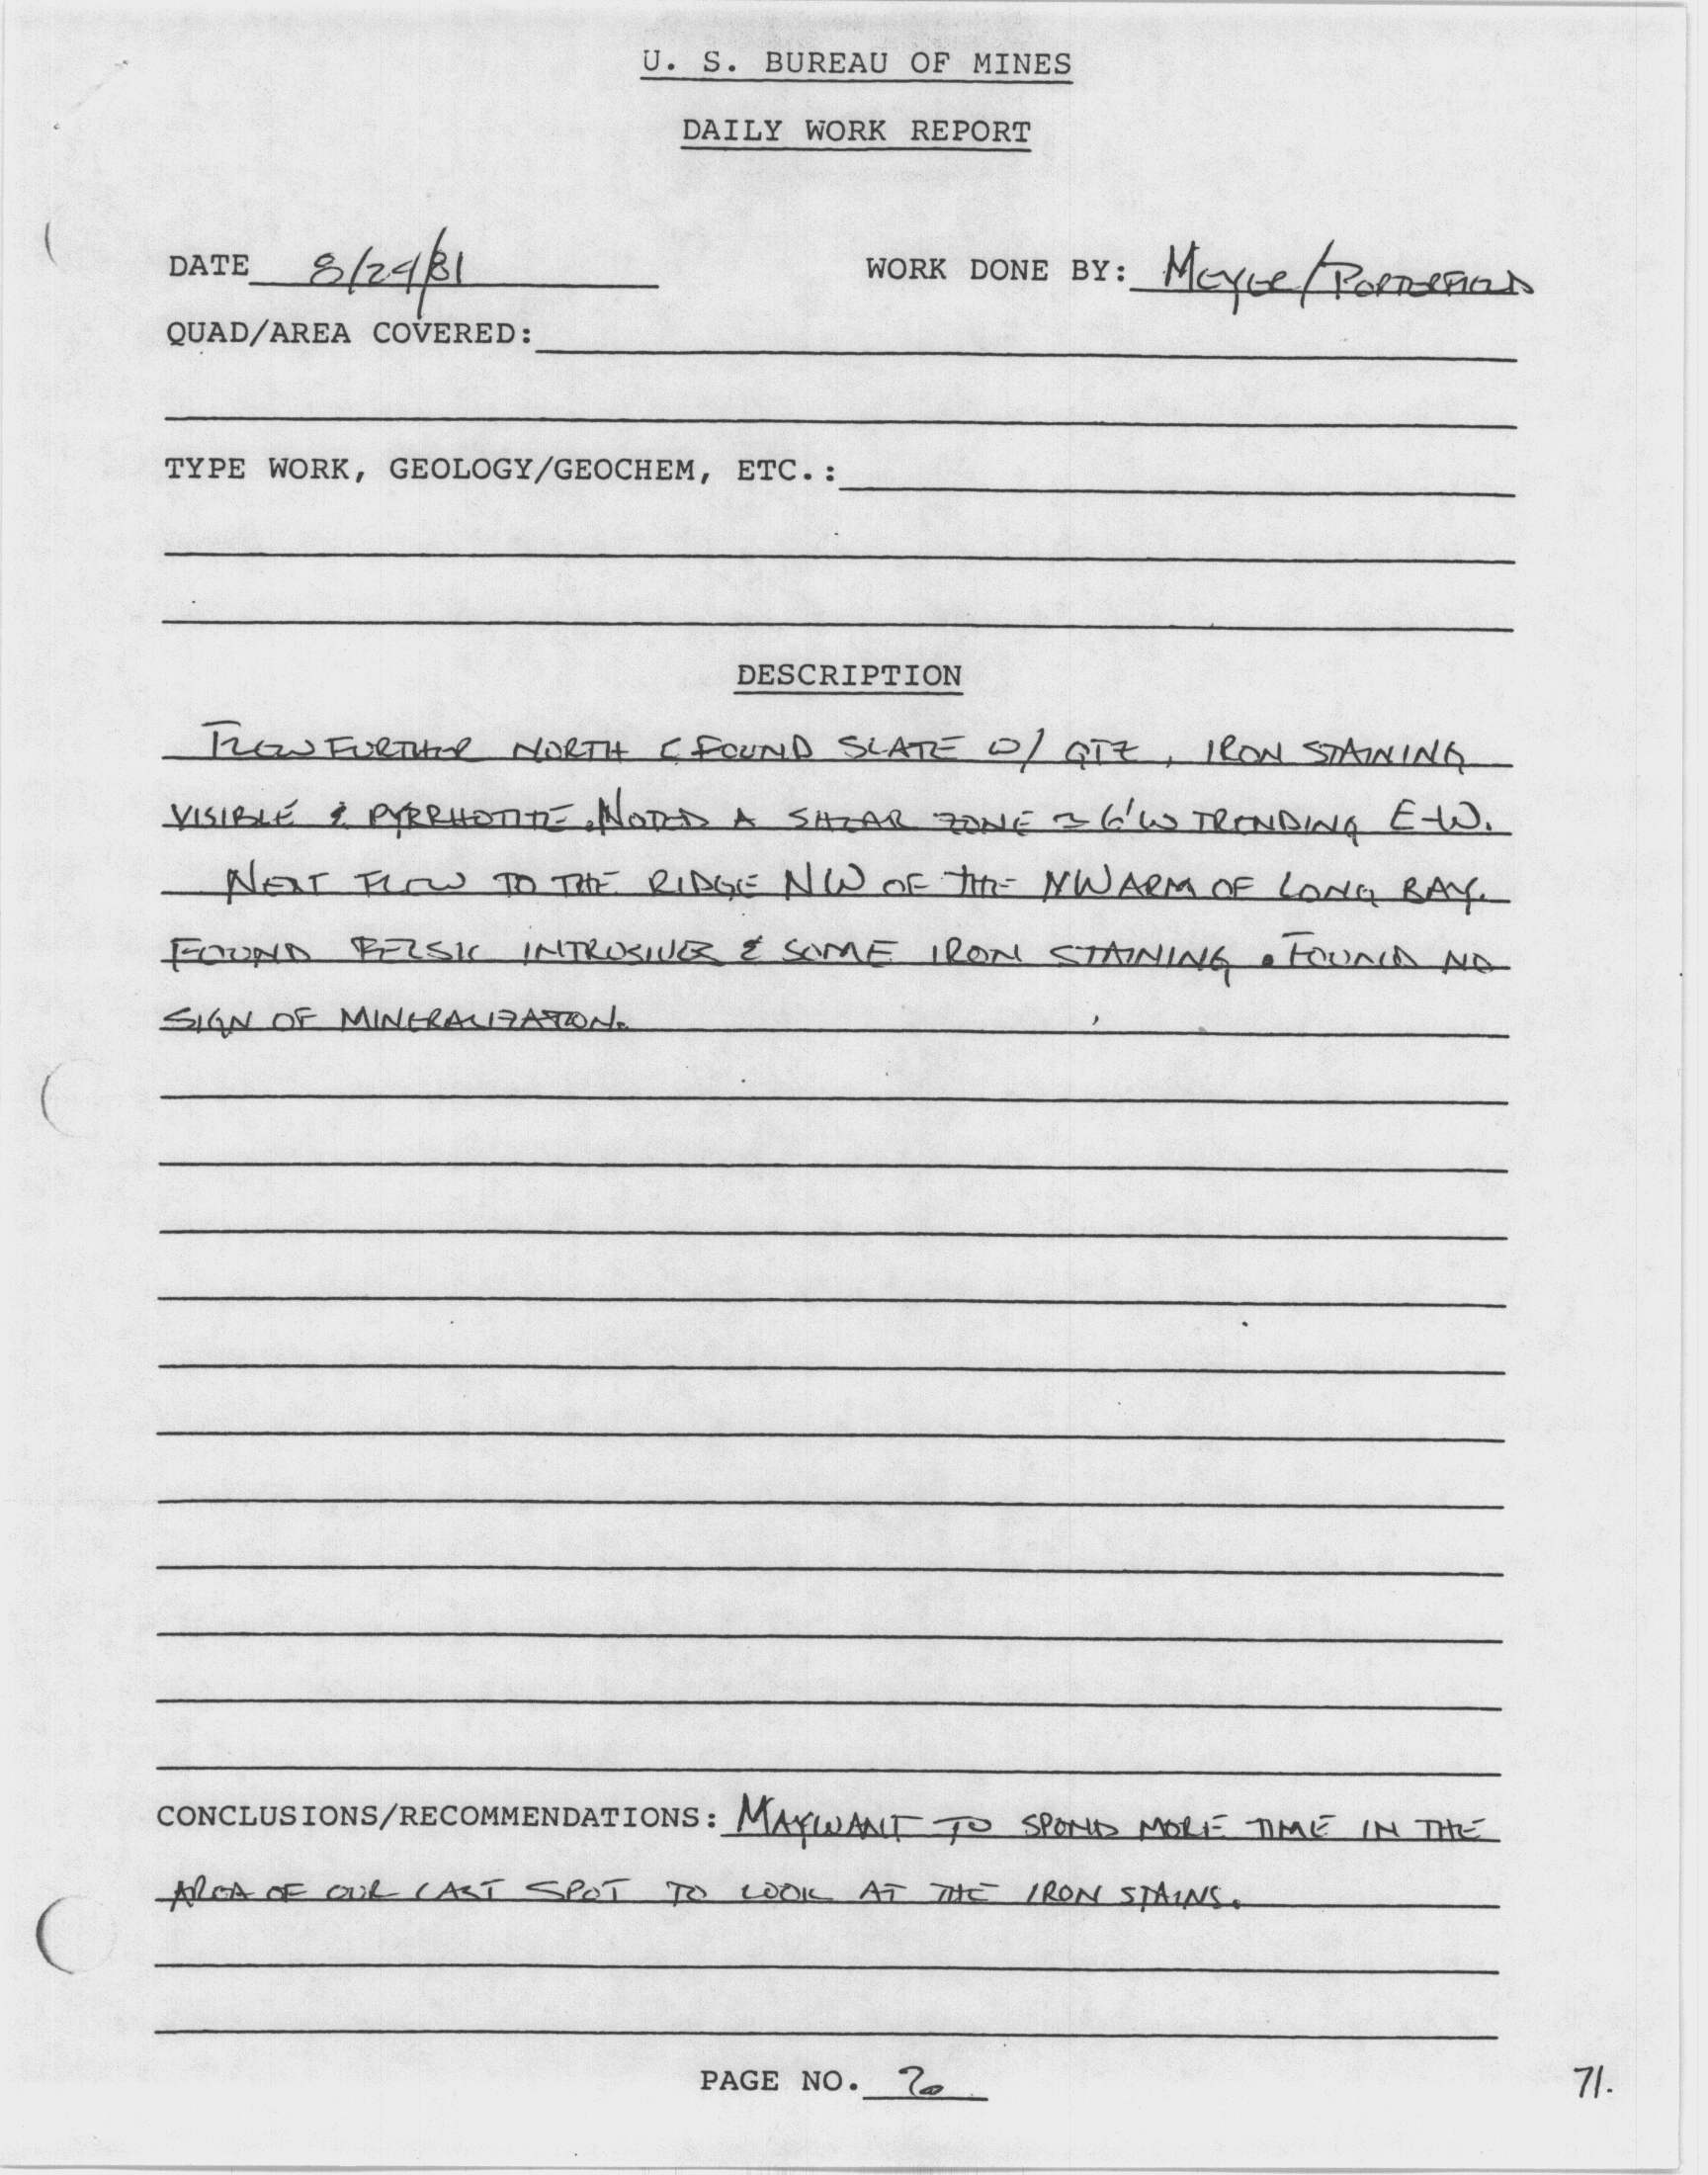 U. S. BUREAU OF MINES
DAILY WORK REPORT
DATE 8/24/81 WORK DONE BY: MEYER/PORTERFIELD
QUAD/AREA COVERED:
TYPE WORK, GEOLOGY/GEOCHEM, ETC.:
DESCRIPTION
FLEW FURTHER NORTH & FOUND SLATE W/ QTZ, IRON STAINING
VISIBLE & PYRRHOTITE. NOTED A SHEAR ZONE ~ 6'W TRENDING E-W.
NEXT FLEW TO THE RIDGE NW OF THE NW ARM OF LONG BAY.
FOUND FELSIC INTRUSIVES & SOME IRON STAINING. FOUND NO
SIGN OF MINERALIZATION.
CONCLUSIONS/RECOMMENDATIONS: MAY WANT TO SPEND MORE TIME IN THE
AREA OF OUR LAST SPOT TO LOOK AT THE IRON STAINS.
PAGE NO.
71.